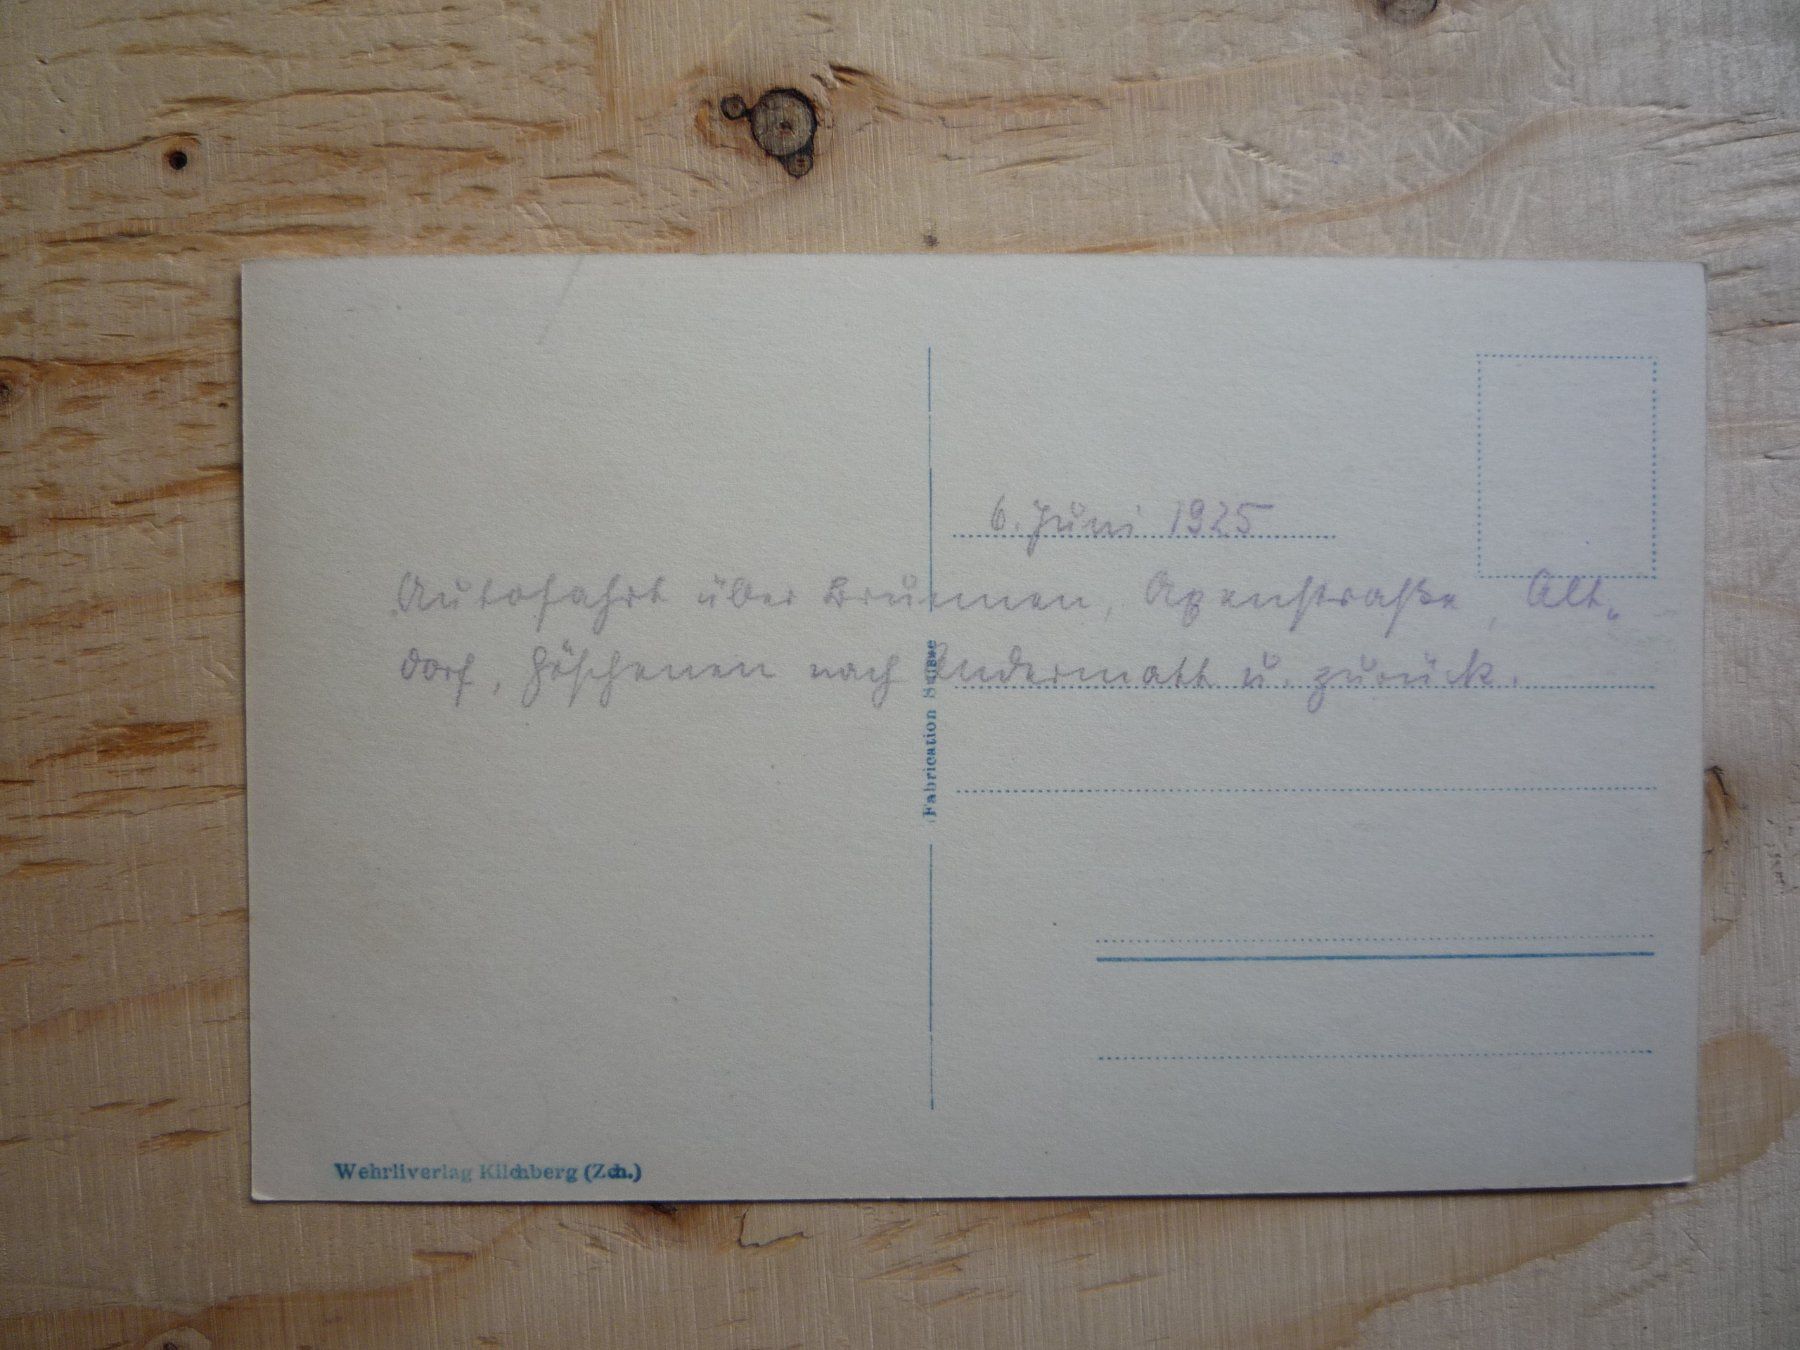 6. Juni 1925
Autofahrt über Brunnen, Axenstraße, Alt-
dorf, Göschenen nach Andermatt u. zurück.
Fabrication Suisse
Wehrliverlag Kilchberg (Zch.)